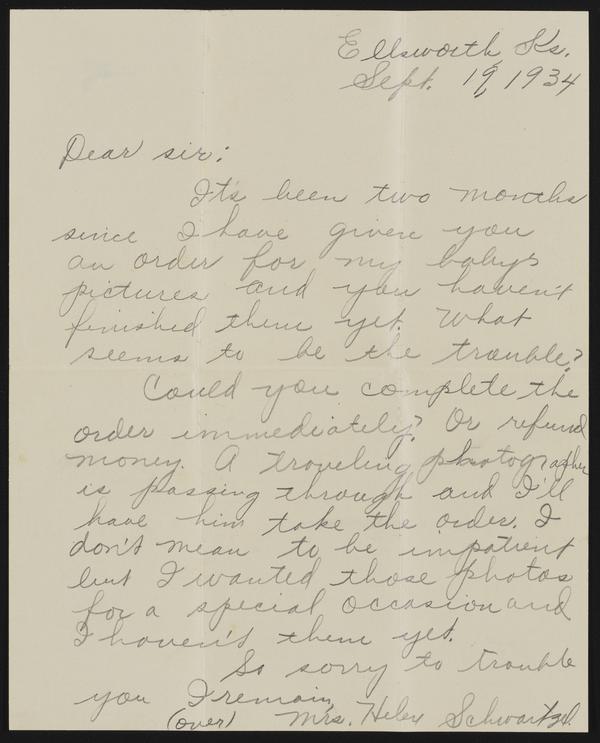 Ellsworth, Ks.
Sept. 19, 1934
Dear sir:
It's been two months
since I have given you
an order for my babys
pictures and you haven't
finished them yet. What
seems to be the trouble?
Could you complete the
order immediately? Or refund
money. A traveling photographer
is passing through and I'll
have him take the order. I
don't mean to be impatient
but I wanted those photos
for a special occasion and
I haven't them yet.
So sorry to trouble
you I remain,
(over) Mrs. Helen